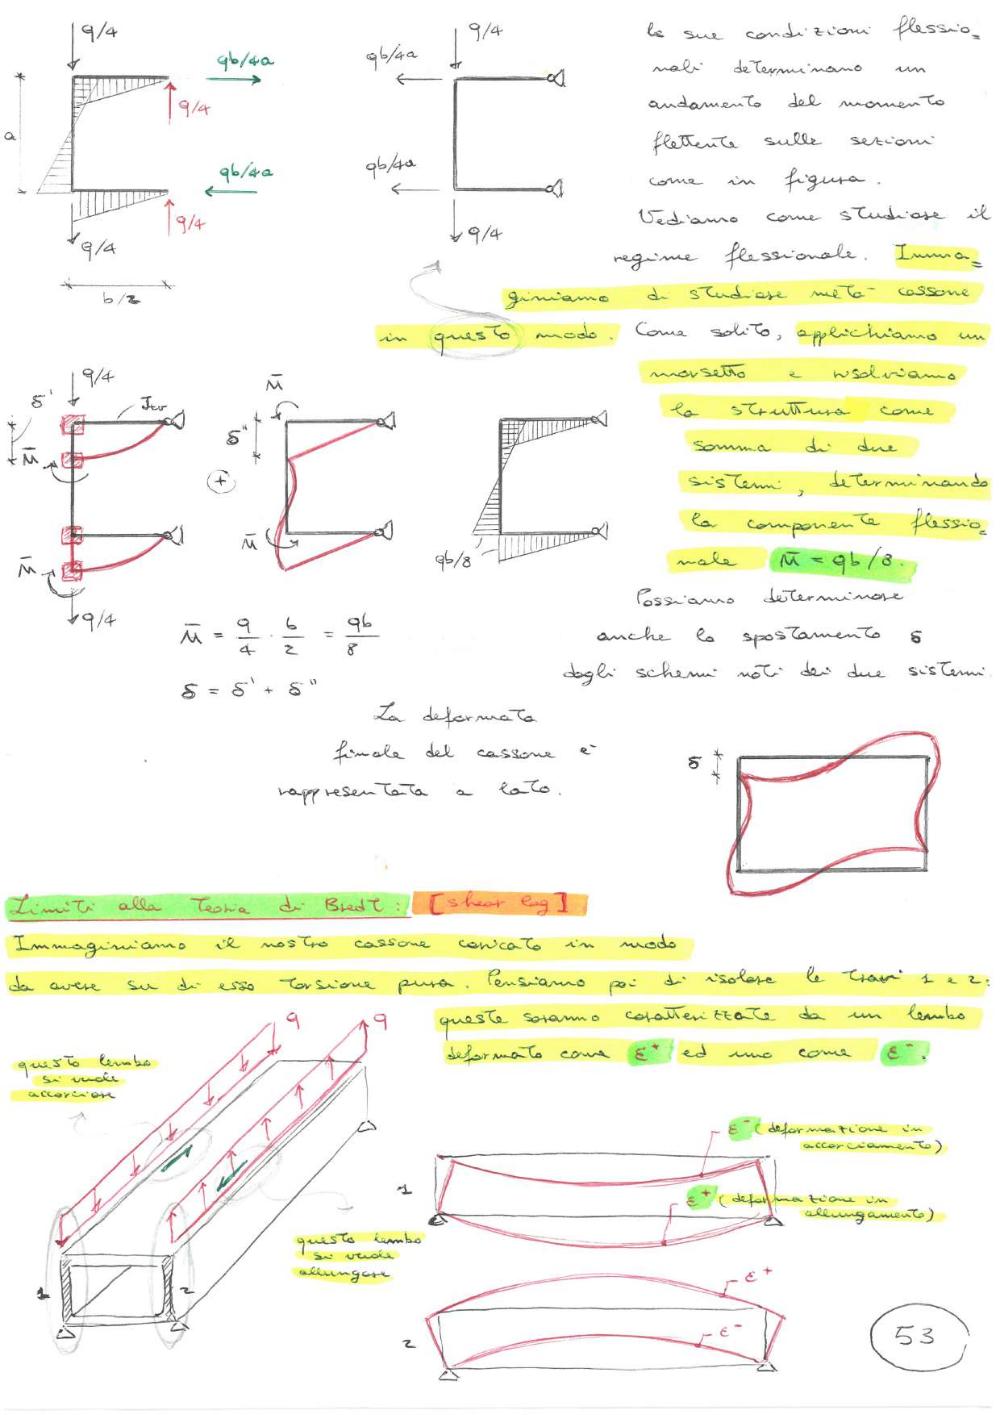 q/4
qb/4a
q/4
a
qb/4a
q/4
q/4
b/2
q/4
qb/4a
qb/4a
q/4
le sue condizioni flessio=
nali determinano un
andamento del momento
flettente sulle sezioni
come in figura.
Vediamo come studiare il
regime flessionale. Imma=
giniamo di studiare metà cassone
in questo modo. Come solito, applichiamo un
morsetto e risolviamo
la struttura come
somma di due
sistemi, determinando
la componente flessio=
nale M̄ = qb/8.
Possiamo determinare
anche lo spostamento δ
dagli schemi noti dei due sistemi.
q/4
δ'
Jtr
M̄
M̄
q/4
+
M̄
δ"
M̄
qb/8
M̄ = q/4 · b/2 = qb/8
δ = δ' + δ"
La deformata
finale del cassone è
rappresentata a lato.
δ
Limiti alla teoria di Bredt: [shear lag]
Immaginiamo il nostro cassone caricato in modo
da avere su di esso torsione pura. Pensiamo poi di isolare le travi 1 e 2:
queste saranno caratterizzate da un lembo
deformato come ε⁺ ed uno come ε⁻.
q
q
questo lembo
si vuole
accorciare
questo lembo
si vuole
allungare
1
2
ε⁻ (deformazione in
accorciamento)
1
ε⁺ (deformazione in
allungamento)
ε⁺
ε⁻
2
53